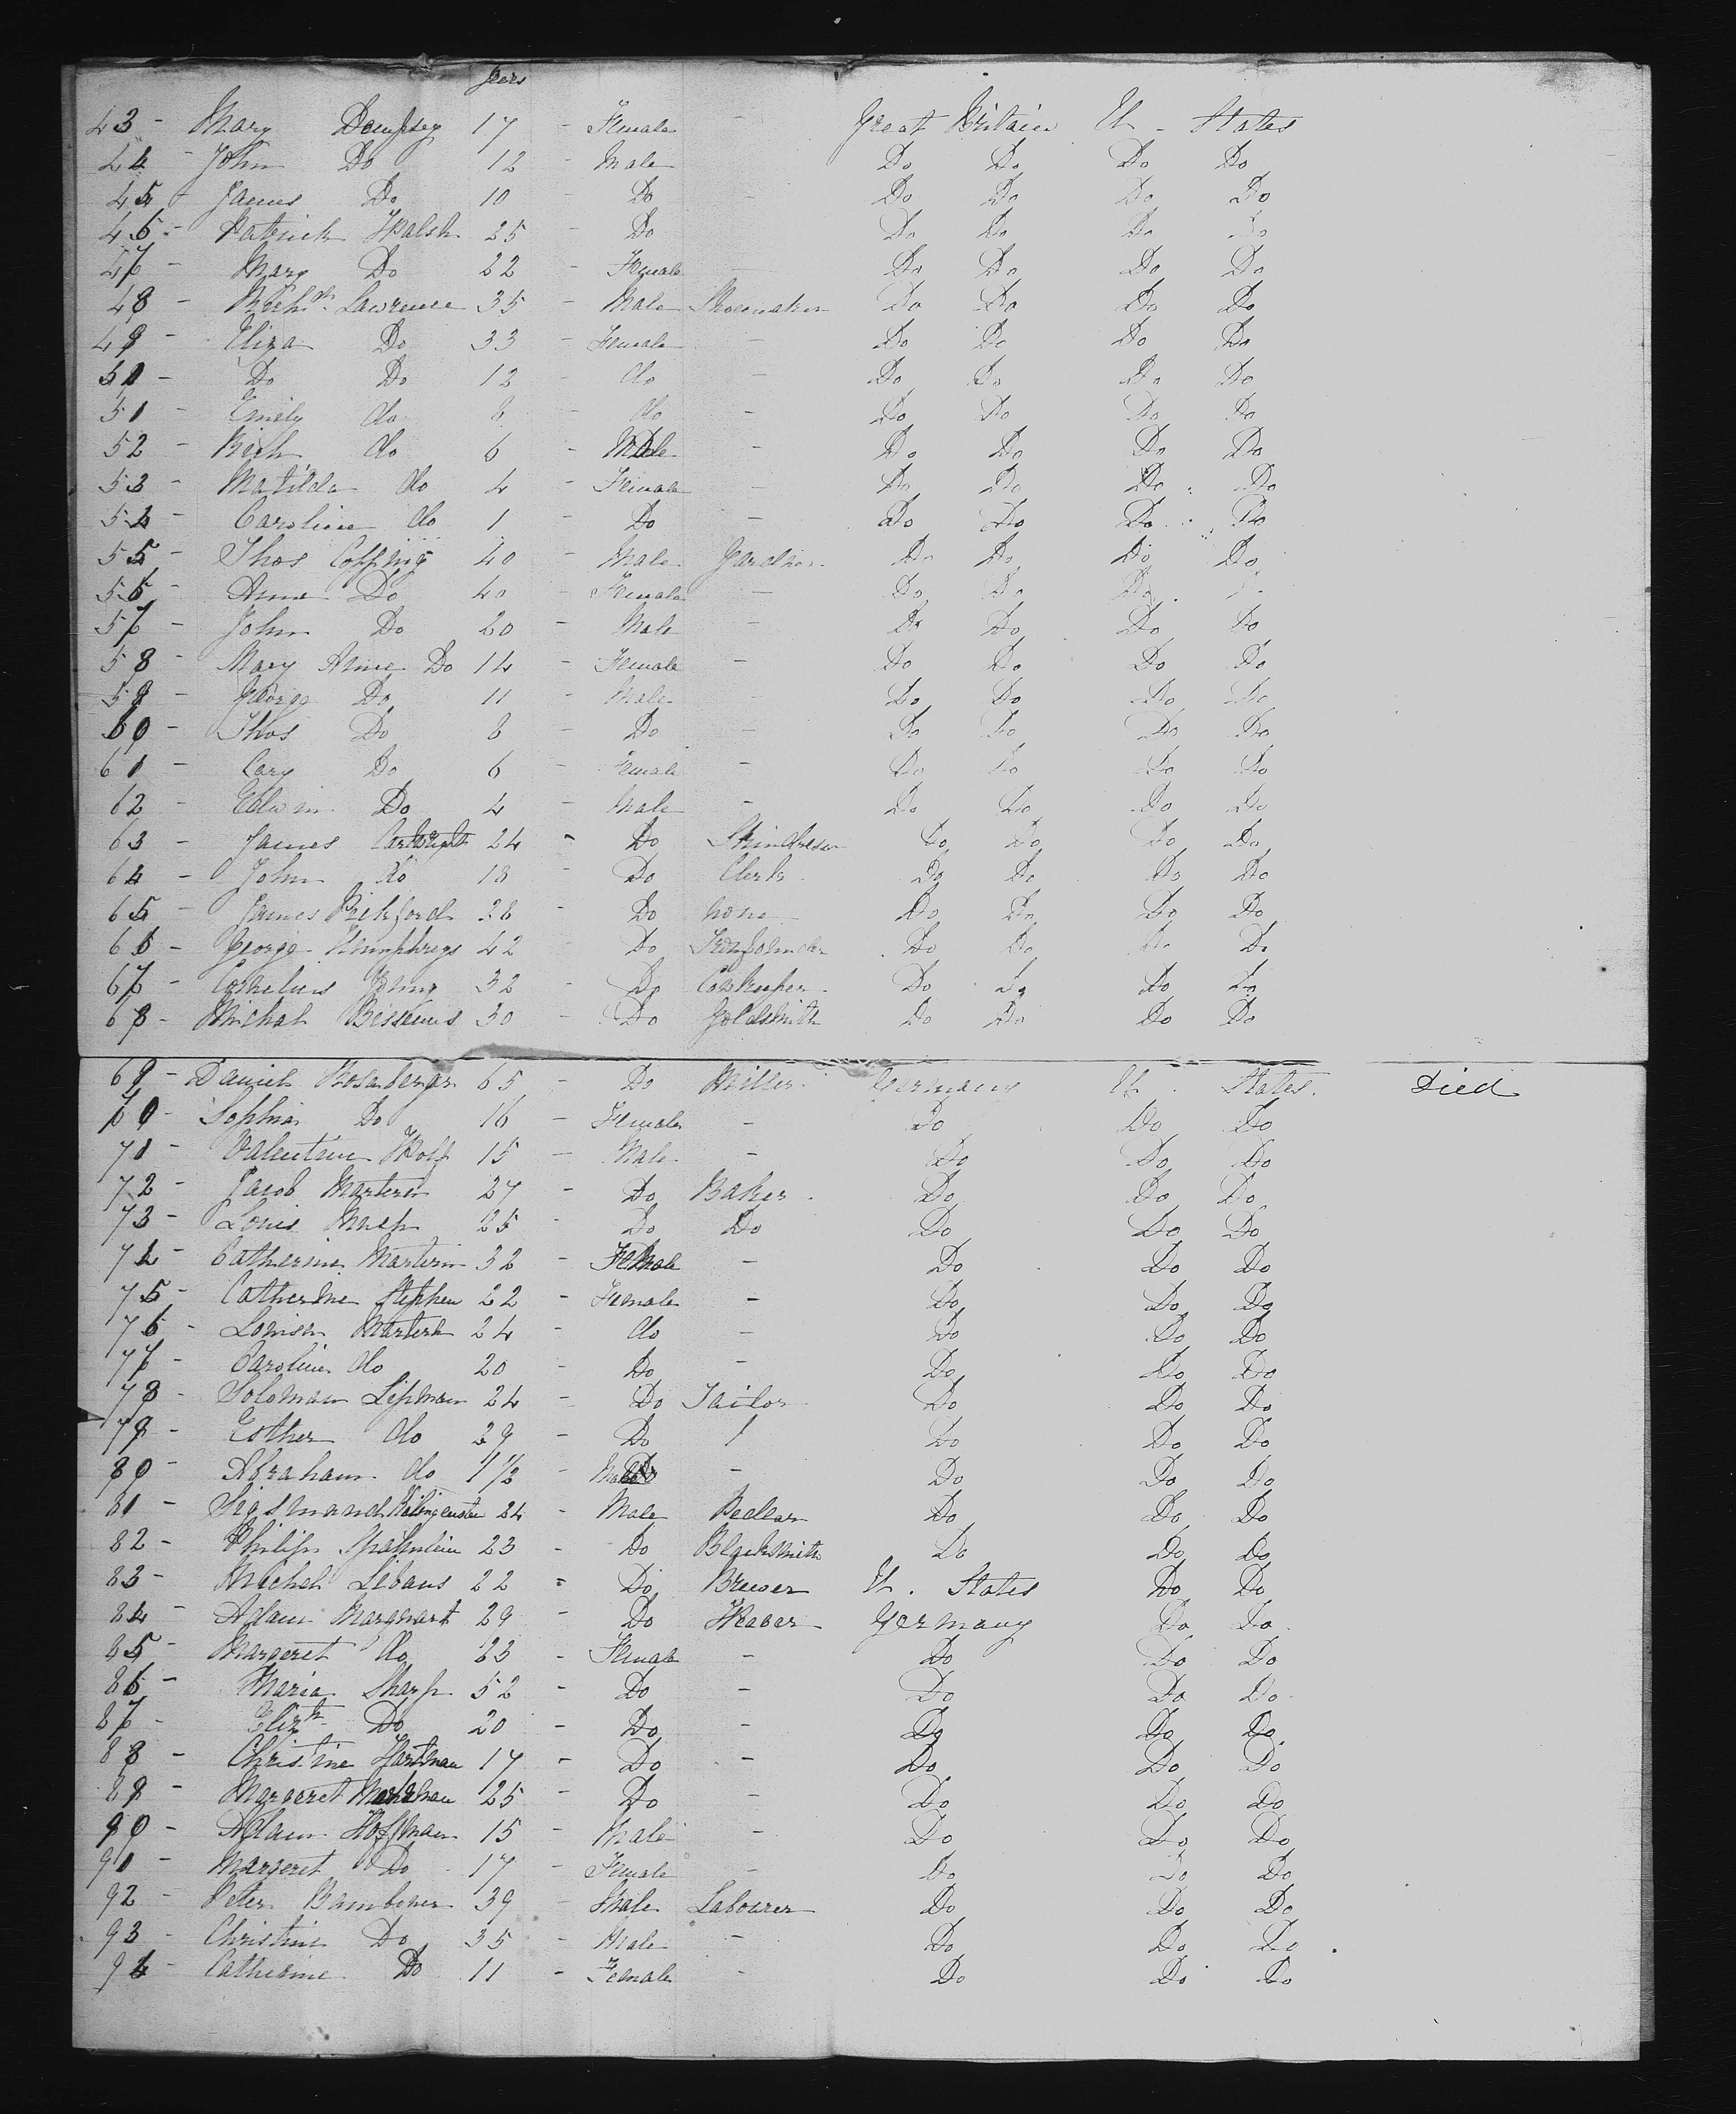 years
43 - Mary Dempsey 17 - Female - Great Britain U - States
44 - John Do 12 - Male Do Do Do Do
45 - James Do 10 - Do - Do Do Do Do
46 - Patrick Walsh 25 - Do Do Do Do Do
47 - Mary Do 22 - Female - Do Do Do Do
48 - Lawrence 35 - Male Shoemaker Do Do Do Do
49 - Eliza Do 33 - Female - Do Do Do Do
50 - Do Do 12 - do - Do Do Do Do
51 - Emily do 8 - do - Do Do Do Do
52 - Rich do 6 - Male - Do Do Do Do
53 - Matilda do 4 - Female - Do Do Do Do
54 - Caroline do 1 - Do - Do Do Do Do
55 - Thos Copping 40 - Male Gardner Do Do Do Do
56 - Anna Do 40 - Female - Do Do Do
57 - John Do 20 - Male - Do Do Do Do
58 - Mary Anne Do 14 - Female - Do Do Do Do
59 - George Do 11 - Male - Do Do Do Do
60 - Thos Do 8 - Do - Do Do Do Do
61 - Do 6 - Female - Do Do Do Do
62 - Edwin Do 4 - Male - Do Do Do Do
63 - James Cartwright 24 - Do Skindresser Do Do Do Do
64 - John Do 18 - Do Clerk Do Do Do Do
65 - James Pickford 28 - Do none Do Do Do Do
66 - George Humphreys 42 - Do Do Do Do Do
67 - Cornelius 32 - Do Cowkeeper Do Do Do Do
68 - Michal 30 - Do Goldsmith Do Do Do Do
69 - Daniel Rosenberger 65 - Do Miller Germany U. States. Died
70 - Sophia Do 16 - Female - Do Do Do
71 - Valentine Wolf 15 - Male - Do Do Do
72 - Jacob 27 - Do Baker. Do Do Do
73 - Louis 25 - Do Do Do Do Do
74 - Catherine 32 - Female - Do Do Do
75 - Catherine Stephen 22 - Female - Do Do Do
76 - Louisa 24 - do - Do Do Do
77 - Caroline do 20 - Do - Do Do Do
78 - Soloman Lipman 24 - Do Tailor Do Do Do
79 - Esther do 29 - Do / Do Do Do
80 - Abraham do 1 1/2 - Male - Do Do Do
81 - Sigsmand 24 - Male Pedlar Do Do Do
82 - Philip 23 - Do Blacksmith Do Do Do
83 - Michel 22 - Do Brewer U. States Do Do
84 - Adam Marquart 29 - Do Weaver Germany Do Do
85 - Margeret do 23 - Female - Do Do Do
86 - Maria Sharp 52 - Do - Do Do Do
87 - Elizth Do 20 - Do - Do Do Do
88 - Christine Hartman 17 - Do - Do Do Do
89 - Margeret 25 - Do - Do Do Do
90 - Adam Hoffman 15 - Male - Do Do Do
91 - Margeret Do 17 - Female - Do Do Do
92 - Peter 39 - Male Labourer Do Do Do
93 - Christine Do 35 - Male - Do Do Do
94 - Catherine Do 11 - Female - Do Do Do